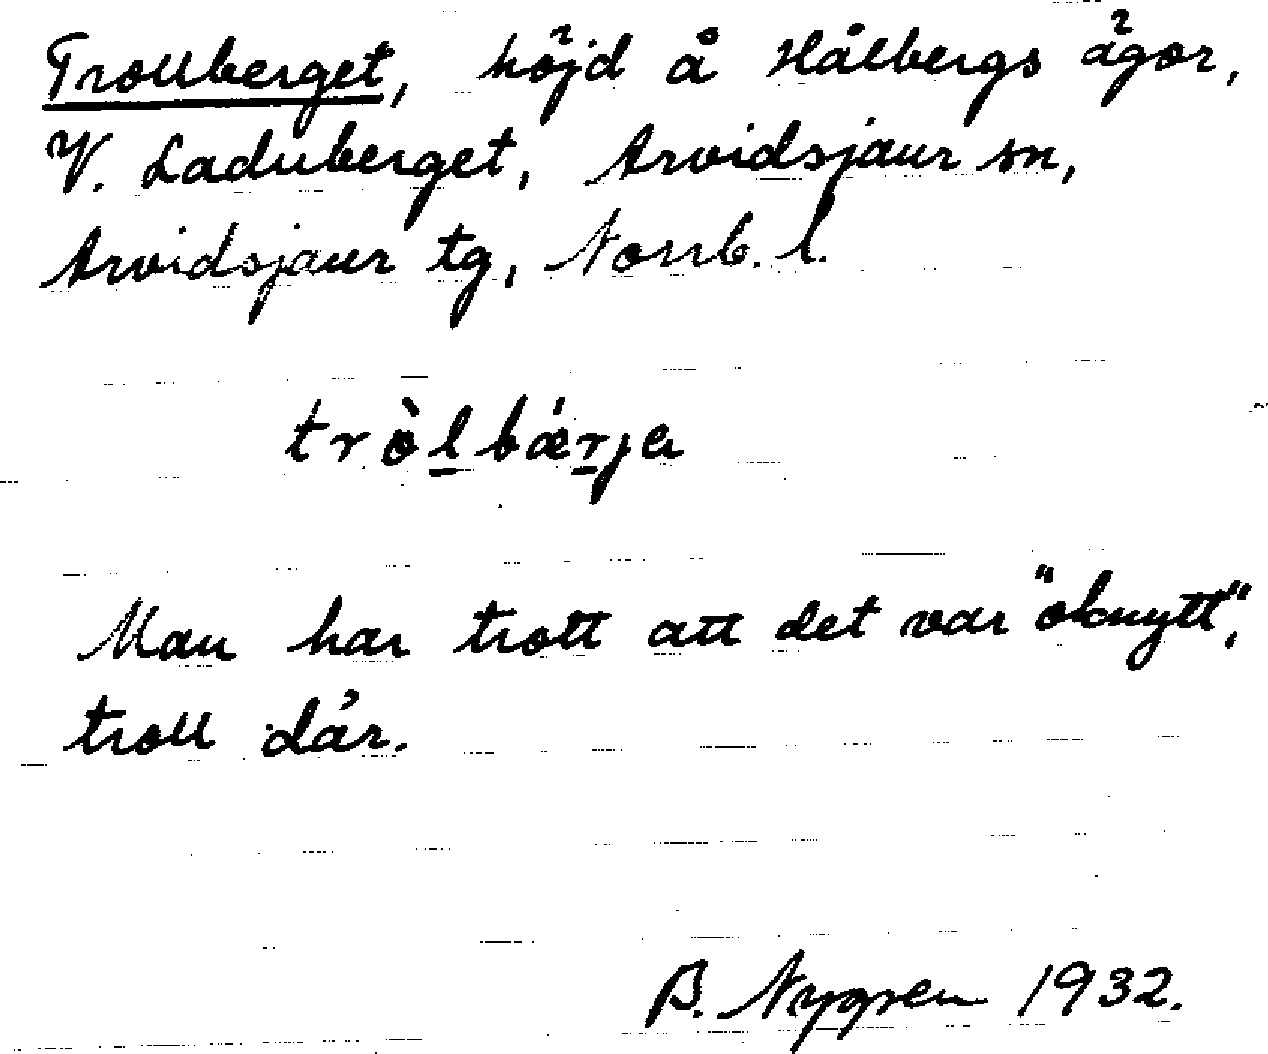 Trollberget, höjd å Hålbergs ägor,
V. Laduberget, Arvidsjaur sn,
Arvidsjaur tg, Norrb. l.
tròlbǽrja
Man har trott att det var "oknytt",
troll där.
B. Nygren 1932.